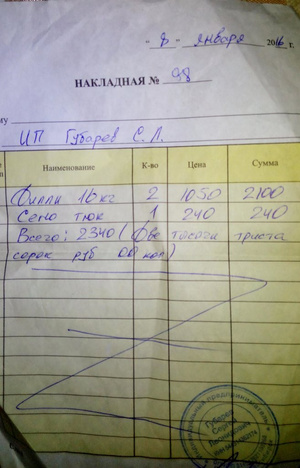 "8" января 2016 г.
НАКЛАДНАЯ № 98
му
ИП Губарев С. Л.
Наименование К-во Цена Сумма
Филли 16 кг 2 1050 2100
Сено тюк 1 240 240
Всего: 2340 (Две тысячи триста
сорок руб 00 коп)
Губарев